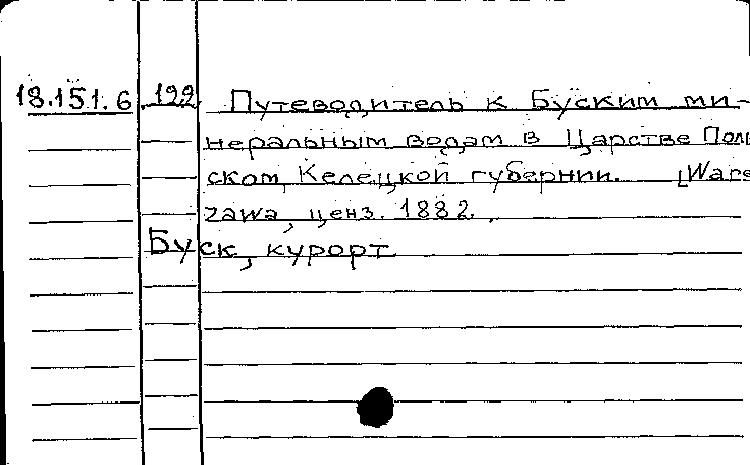 18.151.6 122 Путеводитель к Буским ми-
неральным водам в Царстве Поль
ском, Келецкой губернии. [Wars
zawa, ценз. 1882.
Буск, курорт